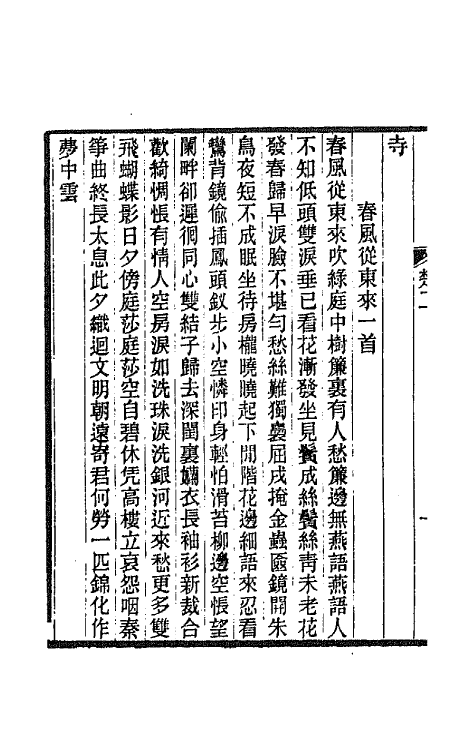 寺
春風從東來一首
春風從東來吹綠庭中樹簾裏有人愁簾邊無燕語燕語人
不知低頭雙淚垂已看花漸發坐見鬢成絲鬢絲靑未老花
發春歸早淚臉不堪勻愁絲難獨裊屈戌掩金蟲匳鏡開朱
鳥夜短不成眠坐待房櫳曉曉起下閒階花邊細語來忍看
鸞背鏡偷插鳳頭釵步小空憐印身輕怕滑苔柳邊空悵望
闌畔卻遲徊同心雙結子歸去深閨裏嬾衣長袖衫新裁合
歡綺惆悵有情人空房淚如洗珠淚洗銀河近來愁更多雙
飛蝴蝶影日夕傍庭莎庭莎空自碧休凭高樓立哀怨咽秦
箏曲終長太息此夕織迴文明朝遠寄君何勞一匹錦化作
夢中雲